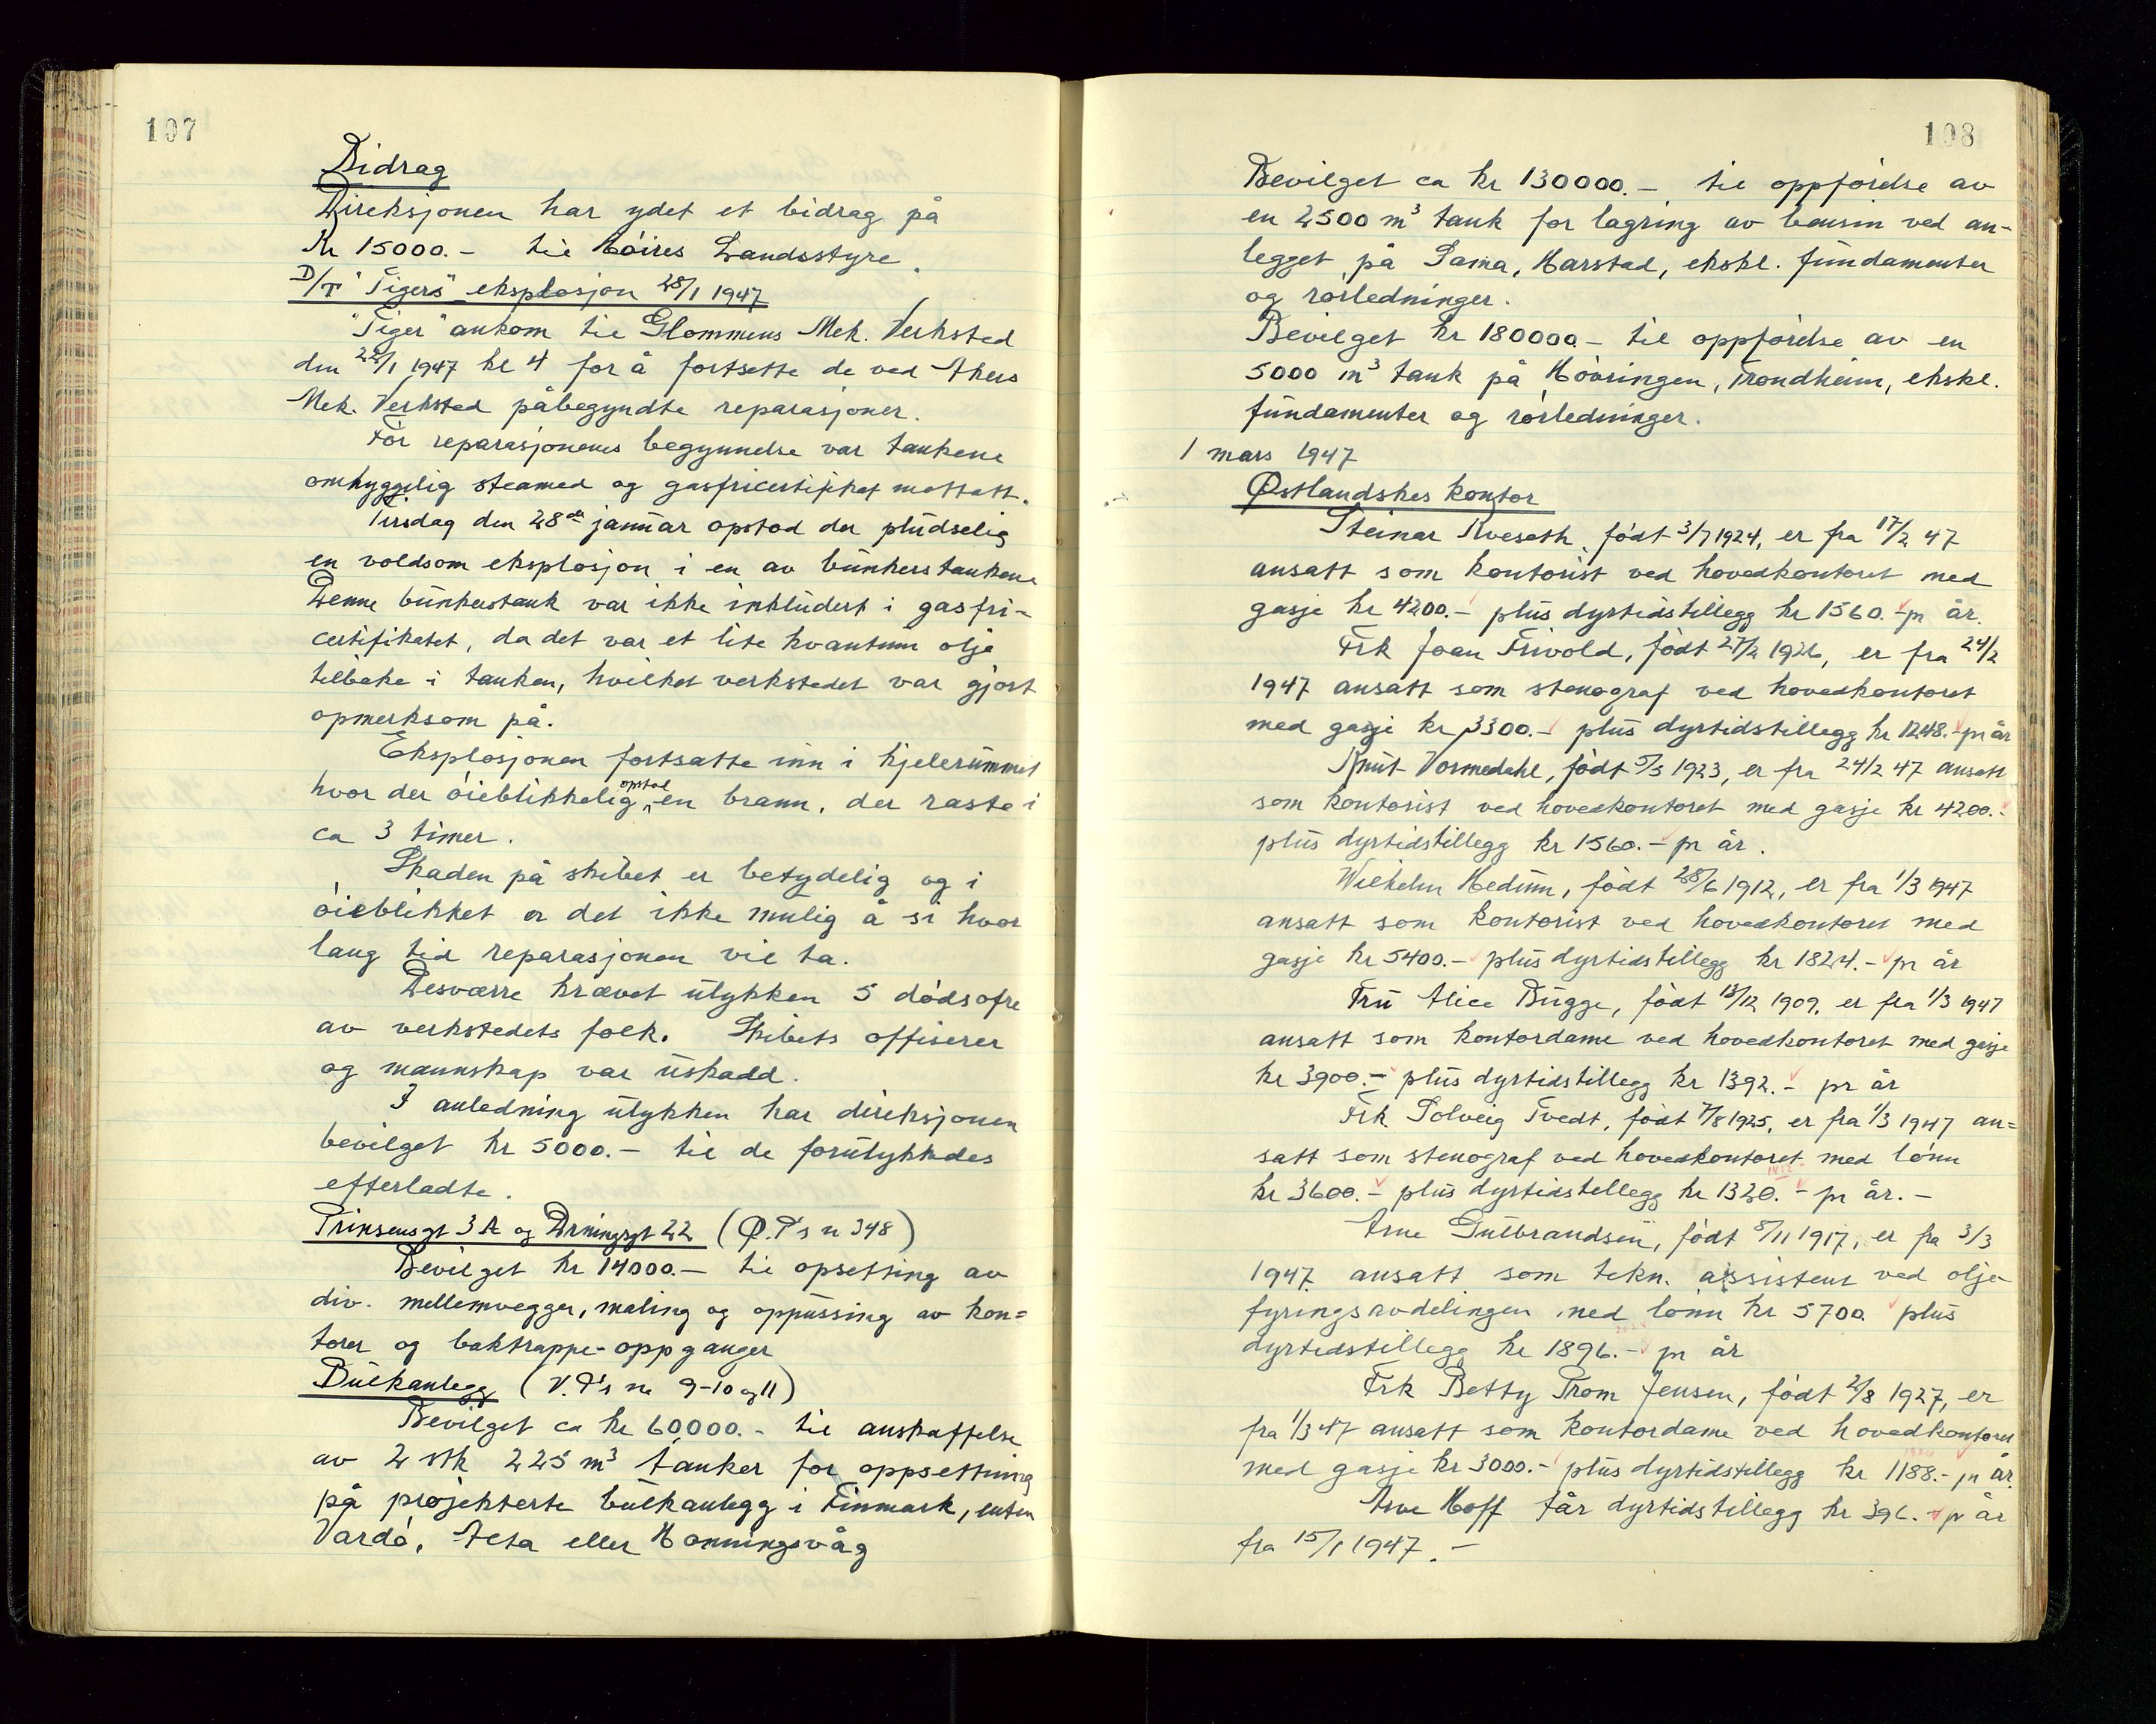 107
Bidrag
Direksjonen har ydet et bidrag på
Kr 15000.- til Höires Landsstyre.
D/T "Tigers" eksplosjon 28/1 1947
"Tiger" ankom til Glommens Mek. Verksted
den 22/1 1947 kl 4 for å fortsette de ved Akers
Mek. Verksted påbegyndte reparasjoner.
För reparasjonenes begynnelse var tankene
omhyggelig steamed og gasfricertifikat mottatt.
Tirsdag den 28de januar opstod der pludselig
en voldsom eksplosjon i en av bunkerstankene
Denne bunkerstank var ikke inkludert i gasfri-
certifikatet, da det var et lite kvantum olje
tilbake i tanken, hvilket verkstedet var gjort
opmerksom på.
Eksplosjonen fortsatte inn i kjelerummet
hvor der öieblikkelig opstod en brann, der raste i
ca 3 timer.
Skaden på skibet er betydelig og i
öieblikket er det ikke mulig å si hvor
lang tid reparasjonen vil ta.
Desværre krævet ulykken 5 dødsofre
av verkstedets folk. Skibets offiserer
og mannskap var uskadd.
I anledning ulykken har direksjonen
bevilget kr 5000.- til de forulykkedes
efterladte.
Prinsensgt 3A og Drningsgt 22 (Ø.P's nr 348)
Bevilget kr 14000.- til opsetting av
div. mellemvegger, maling og oppussing av kon=
torer og baktrappe-oppganger
Bulkanlegg (V.P's nr 9-10 og 11)
Bevilget ca kr 60000.- til anskaffelse
av 2 stk 225 m³ tanker for oppsetning
på projekterte bulkanlegg i Finmark, enten
Vardö, Alta eller Honningsvåg
108
Bevilget ca kr 130000.- til oppförelse av
en 2500 m³ tank for lagring av bensin ved an-
legget på Sama, Harstad, ekskl. fundamenter
og rörledninger.
Bevilget kr 180000.- til oppförelse av en
5000 m³ tank på Hövringen, Trondheim, ekskl.
fundamenter og rörledninger.
1 mars 1947
Østlandskes kontor
Steinar Kveseth, födt 3/7 1924, er fra 17/2 47
ansatt som kontorist ved hovedkontoret med
gasje kr 4200.- plus dyrtidstillegg kr 1560.- pr år.
Frk Joan Frivold, födt 27/2 1926, er fra 24/2
1947 ansatt som stenograf ved hovedkontoret
med gasje kr 3300.- plus dyrtidstillegg kr 1248.- pr år
Knut Vormedahl, födt 5/5 1923, er fra 24/2 47 ansatt
som kontorist ved hovedkontoret med gasje kr 4200.-
plus dyrtidstillegg kr 1560.- pr år.
Wilhelm Hedum, födt 28/6 1912, er fra 1/3 1947
ansatt som kontorist ved hovedkontoret med
gasje kr 5400.- plus dyrtidstillegg kr 1824.- pr år
Fru Alice Bugge, födt 13/12 1909, er fra 1/3 1947
ansatt som kontordame ved hovedkontoret med gasje
kr 3900.- plus dyrtidstillegg kr 1392.- pr år
Frk Solveig Tvedt, födt 7/8 1925, er fra 1/3 1947 an=
satt som stenograf ved hovedkontoret med lönn
kr 3600.- plus dyrtidstillegg kr 1320.- pr år.-
Arne Gulbrandsen, födt 8/11 1917, er fra 3/3
1947 ansatt som tekn. assistent ved olje-
fyringsavdelingen med lönn kr 5700 plus
dyrtidstillegg kr 1896.- pr år
Frk Betty Prom Jensen, födt 2/8 1927, er
fra 1/3 47 ansatt som kontordame ved hovedkontoret
med gasje kr 3000.- plus dyrtidstillegg kr 1188.- pr år.
Arve Hoff får dyrtidstillegg kr 396.- pr år
fra 15/1 1947.-